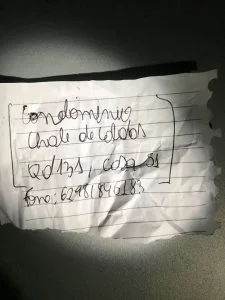 Condominio
Chale de caldas
Qd 131, casa 05
fone: 62981846183